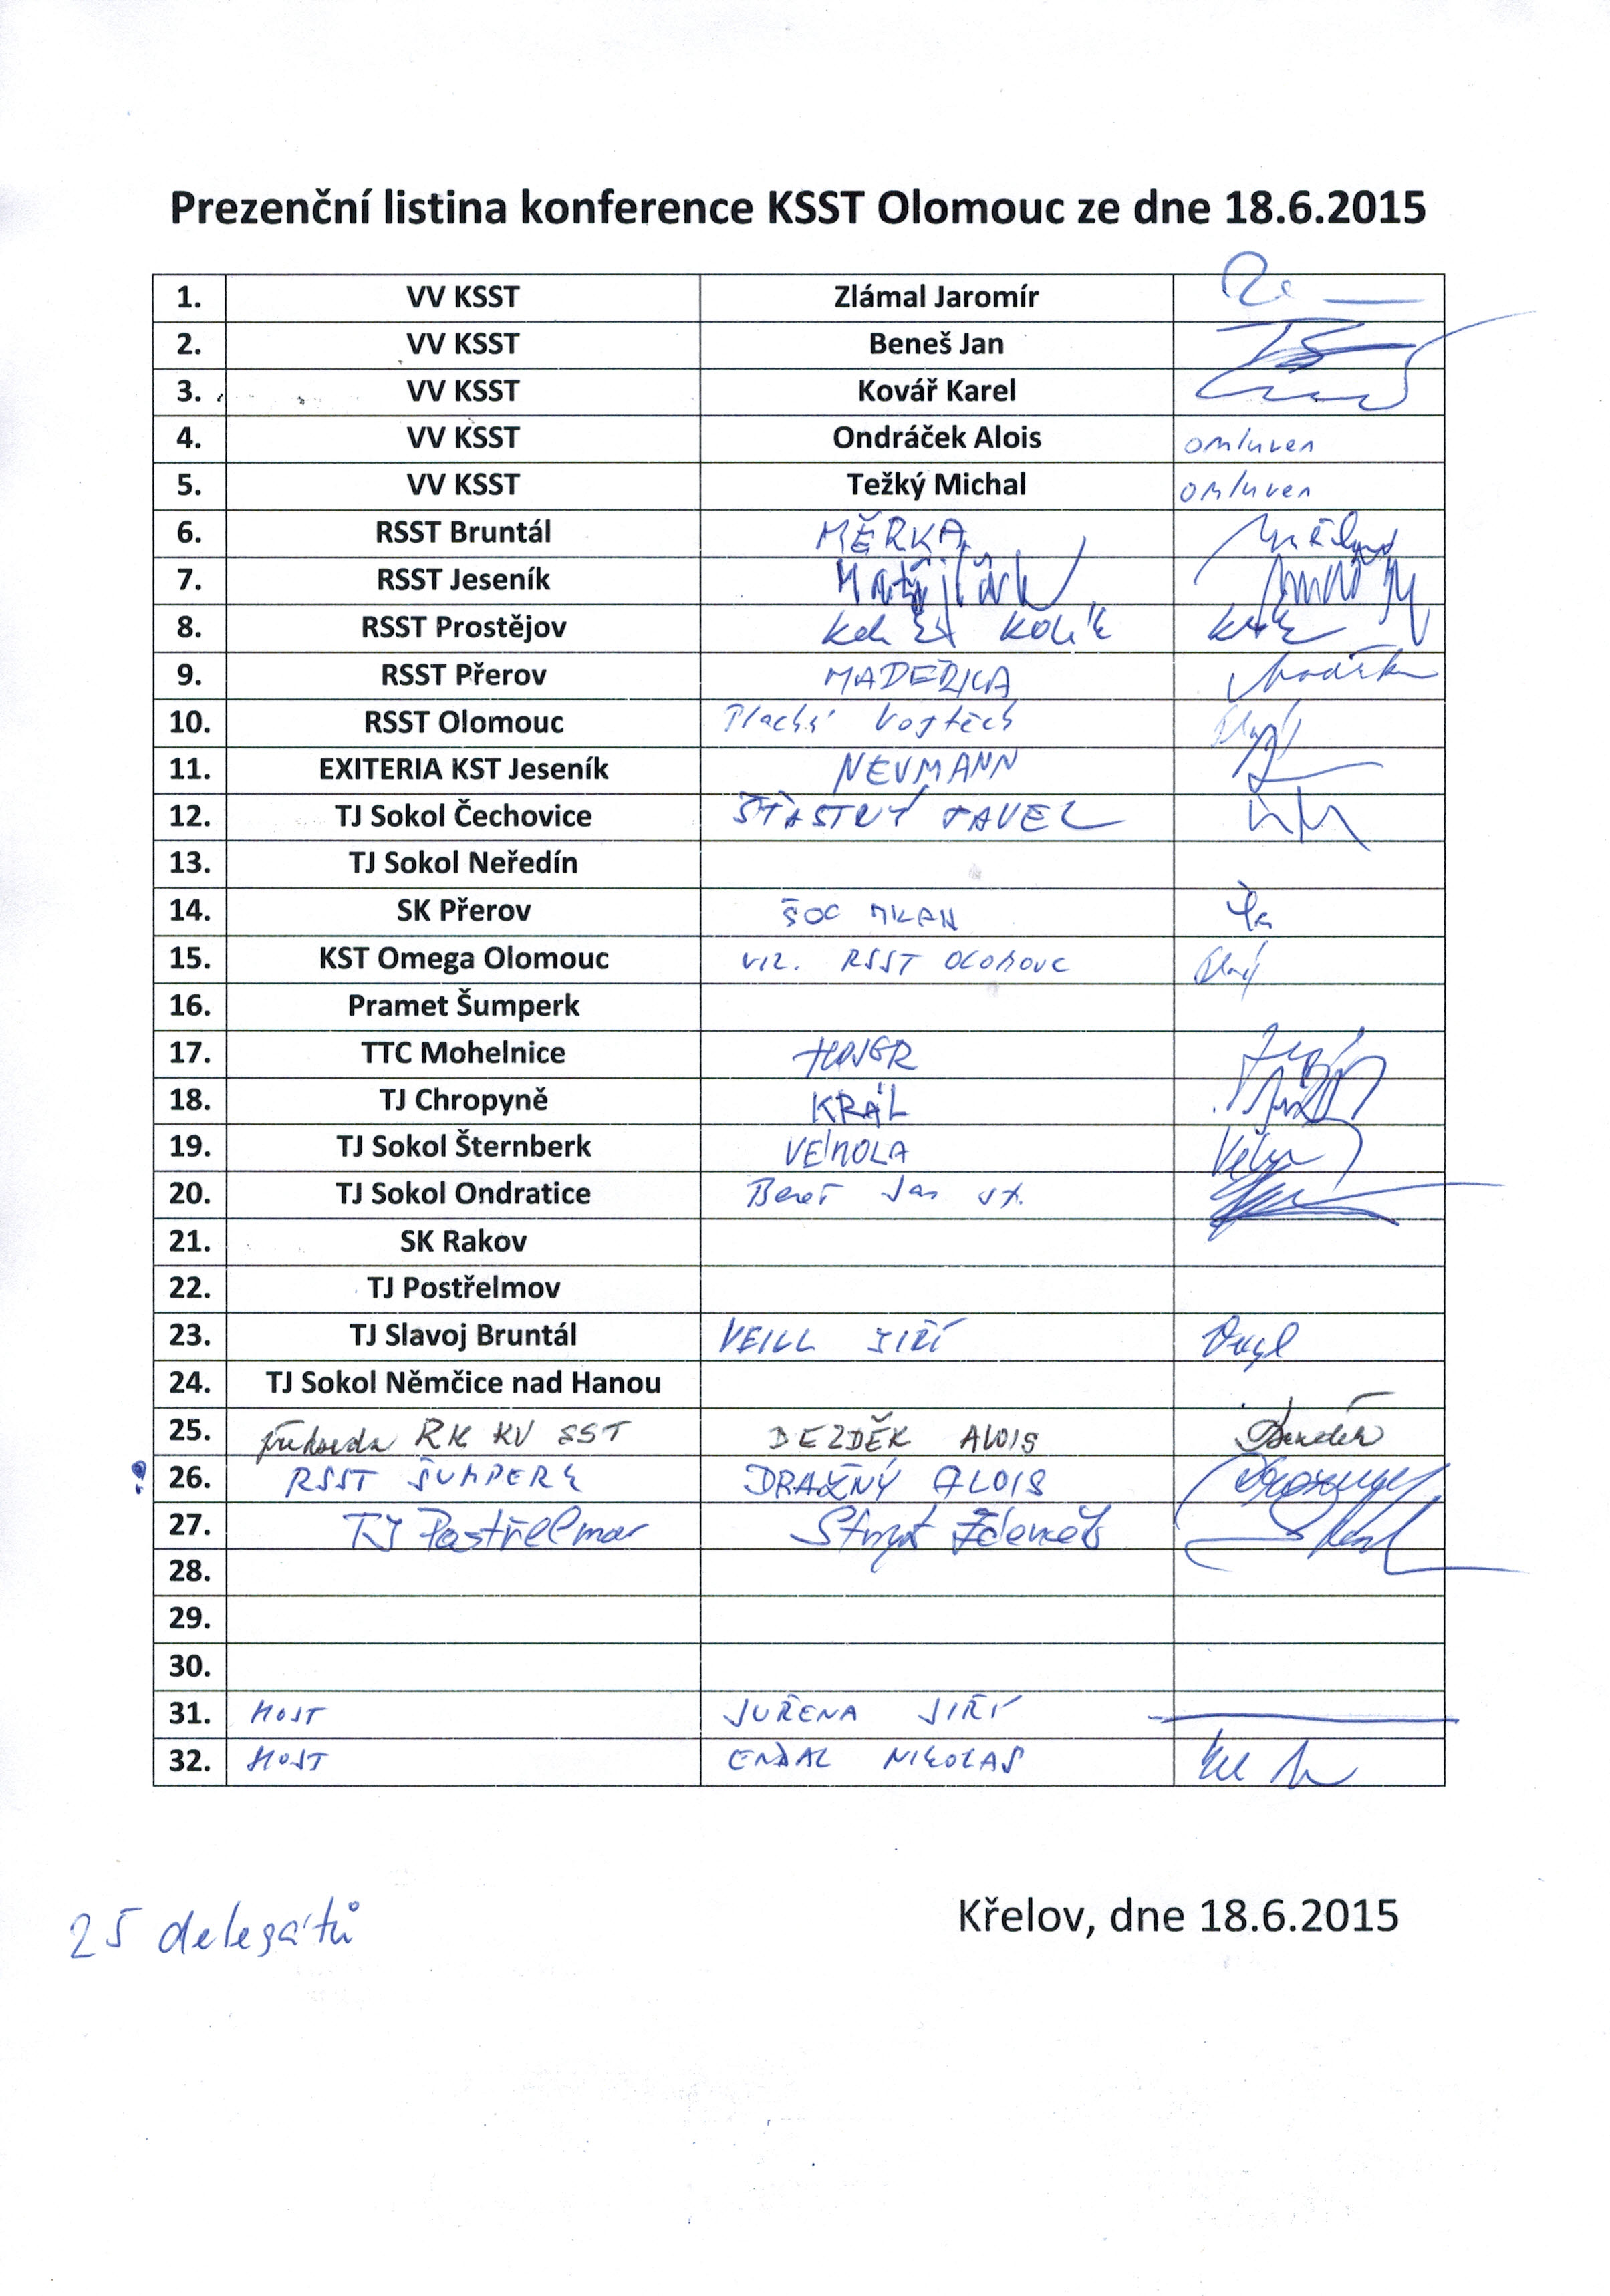 Prezenční listina konference KSST Olomouc ze dne 18.6.2015
1. VV KSST Zlámal Jaromír
2. VV KSST Beneš Jan
3. VV KSST Kovář Karel
4. VV KSST Ondráček Alois omluven
5. VV KSST Težký Michal omluven
6. RSST Bruntál MĚRKA
7. RSST Jeseník
8. RSST Prostějov
9. RSST Přerov MADĚRKA
10. RSST Olomouc Vojtěch
11. EXITERIA KST Jeseník NEUMANN
12. TJ Sokol Čechovice ŠŤASTNÝ PAVEL
13. TJ Sokol Neředín
14. SK Přerov ŠOC
15. KST Omega Olomouc viz. RSST OLOMOUC
16. Pramet Šumperk
17. TTC Mohelnice
18. TJ Chropyně KRÁL
19. TJ Sokol Šternberk
20. TJ Sokol Ondratice Beneš Jan st.
21. SK Rakov
22. TJ Postřelmov
23. TJ Slavoj Bruntál JIŘÍ
24. TJ Sokol Němčice nad Hanou
25. předseda RK KV SST BEZDĚK ALOIS
26. RSST ŠUMPERK DRAŽNÝ ALOIS
27. TJ Postřelmov Zdeněk
28.
29.
30.
31. HOST JUŘENA JIŘÍ
32. HOST ENDAL NIKOLAS
25 delegátů
Křelov, dne 18.6.2015